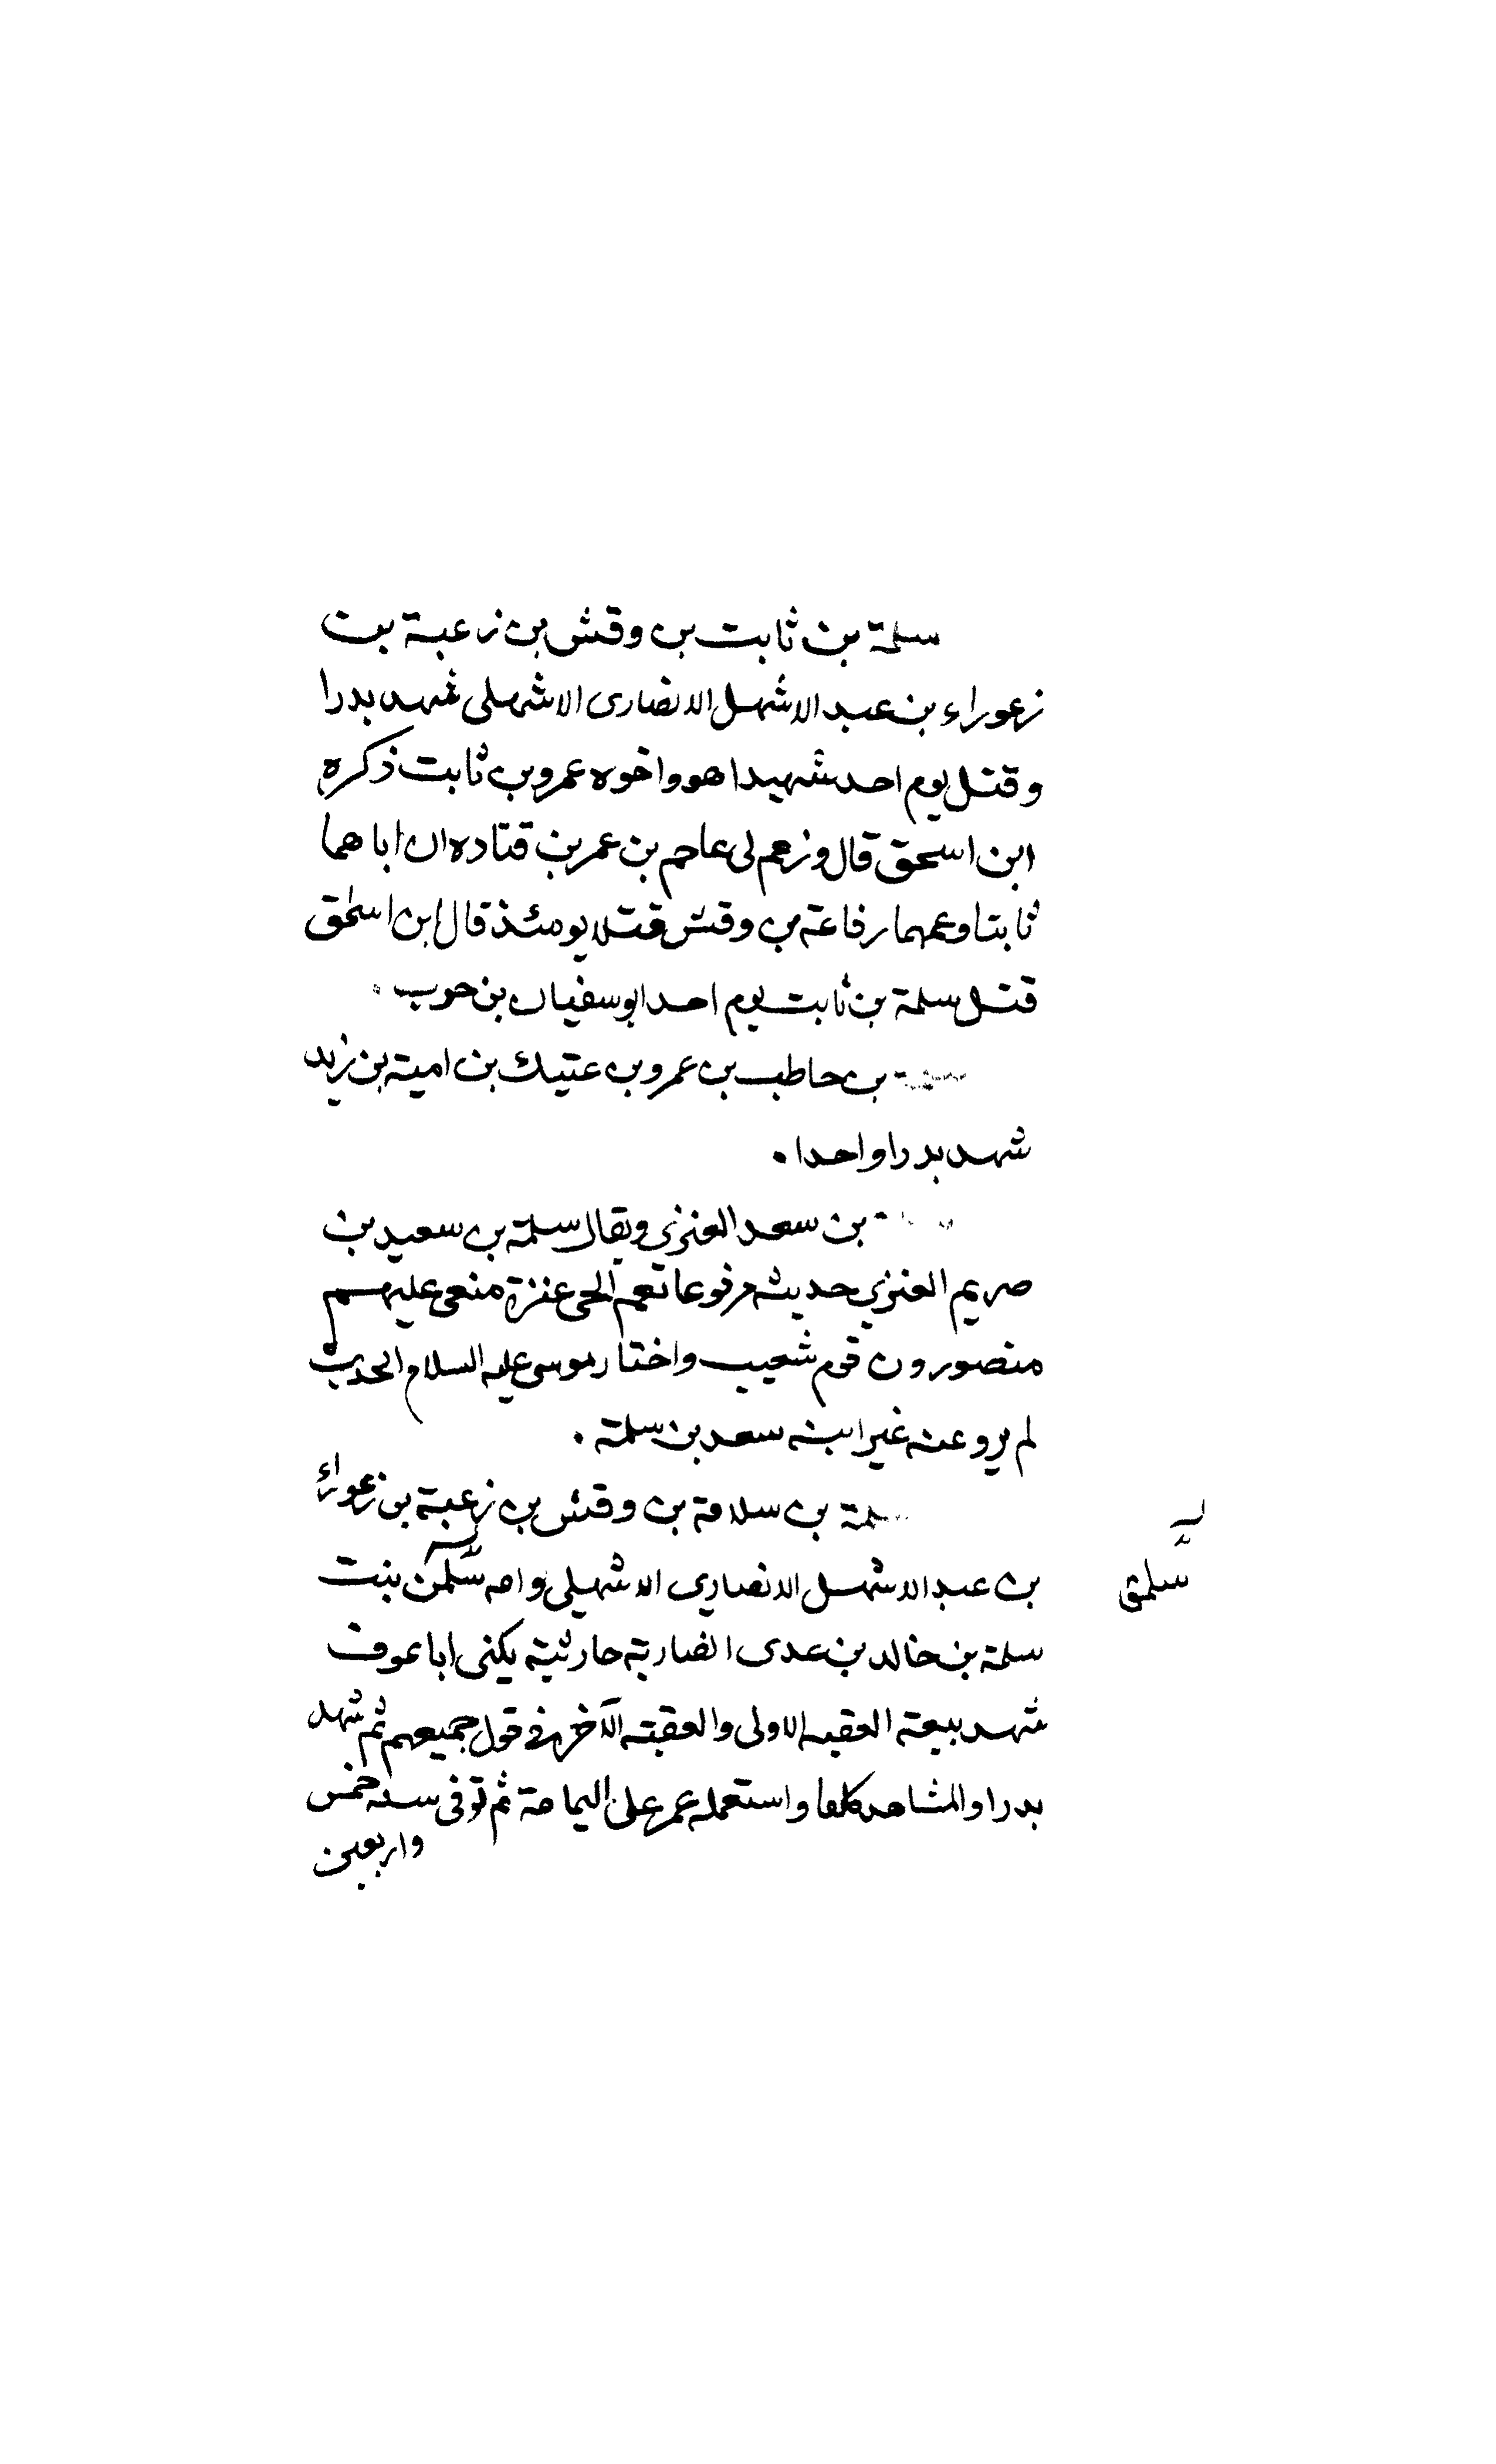 سلمة بن ثابت بن وقش بن زعبة بن
زعوراء بن عبد الاشهل الانصارى الاشهلى شهد بدرا
وقتل يوم احد شهيدا هو واخوه عمرو بن ثابت ذكره
ابن اسحق قال وزعم لى عاصم بن عمر بن قتاده ان اباهما
ثابتا وعمهما رفاعة بن وقش قتلا يومئذ قال ابن اسحق
قتل سلمة بن ثابت يوم احد ابو سفيان بن حرب .
بن حاطب بن عمرو بن عتيك بن امية بن زيد
شهد بدرا واحدا .
بن سعد العنزي ويقال سلمة بن سعيد بن
صريم العنزي حديثه مرفوعا نعم الحى عنزة منعى عليهم
منصورون قوم شعيب واختار موسى عليه السلام الحديث
لم يرو عنه غير ابنه سعد بن سلمة .
سلمة بن سلامة بن وقش بن زعبة بن زعوراء
بن عبد الاشهل الانصاري الاشهلي وامه سلمى بنت
سلمة بن خالد بن عدى انصارية حارثية يكنى ابا عوف
شهد بيعة العقبه الاولى والعقبة الآخرة في قول جميعهم ثم شهد
بدرا والمشاهد كلها واستعمله عمر على اليمامة ثم توفى سنه خمس
واربعين